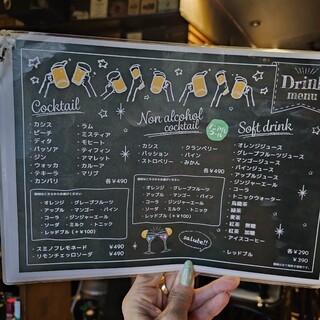 Drink
menu
Cocktail
・カシス ・ラム
・ピーチ ・ミスティア
・ディタ ・モヒート
・パッソア ・ティフィン
・ジン ・アマレット
・ウォッカ ・カルーア
・テキーラ ・マリブ
・カンパリ 各¥490
・オレンジ ・グレープフルーツ
・アップル ・マンゴー ・パイン
・コーラ ・ジンジャーエール
・ソーダ ・ミルク ・トニック
・レッドブル (+¥100)
・スミノフレモネード ¥490
・リモンチェッロソーダ ¥490
Non alcohol
cocktail
・カシス ・クランベリー
・パッション ・パイン
・ストロベリー ・みかん
各¥490
・オレンジ ・グレープフルーツ
・アップル ・マンゴー ・パイン
・コーラ ・ジンジャーエール
・ソーダ ・ミルク ・トニック
・レッドブル (+¥100)
salute!!
Soft drink
・オレンジジュース
・グレープフルーツジュース
・マンゴージュース
・パインジュース
・アップルジュース
・ジンジャーエール
・コーラ
・トニックウォーター
・烏龍茶
・緑茶
・黄茶
・紅茶 無糖
・紅茶 加糖
・アイスコーヒー
各¥290
・レッドブル ¥390